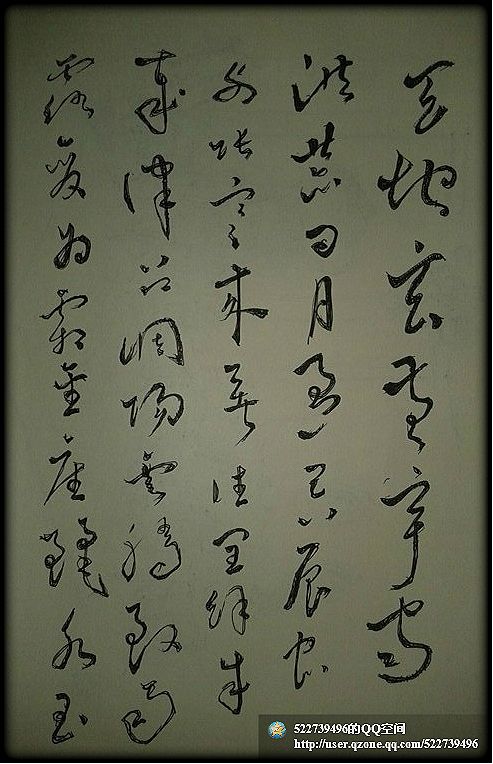 天地玄黃宇宙
洪荒日月盈昃辰宿
列張寒來暑往閏餘成
歲律呂調陽雲騰致雨
露結為霜金生麗水玉
522739496的QQ空间
http://user.qzone.qq.com/522739496